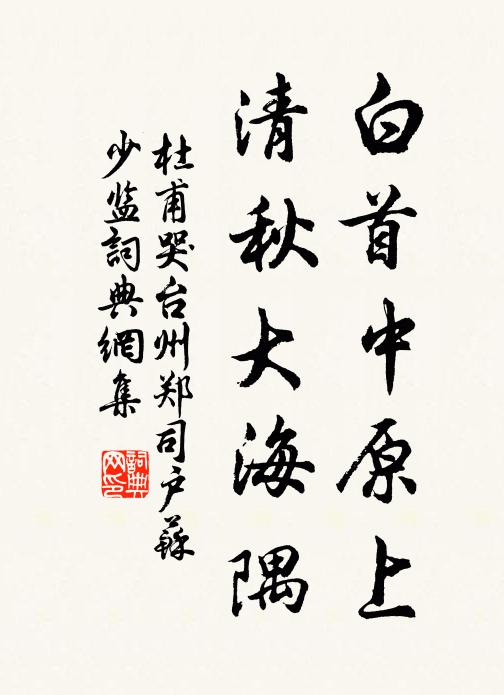 白首中原上
清秋大海隅
杜甫哭台州郑司户蘇
少监詞典網集
詞典网印